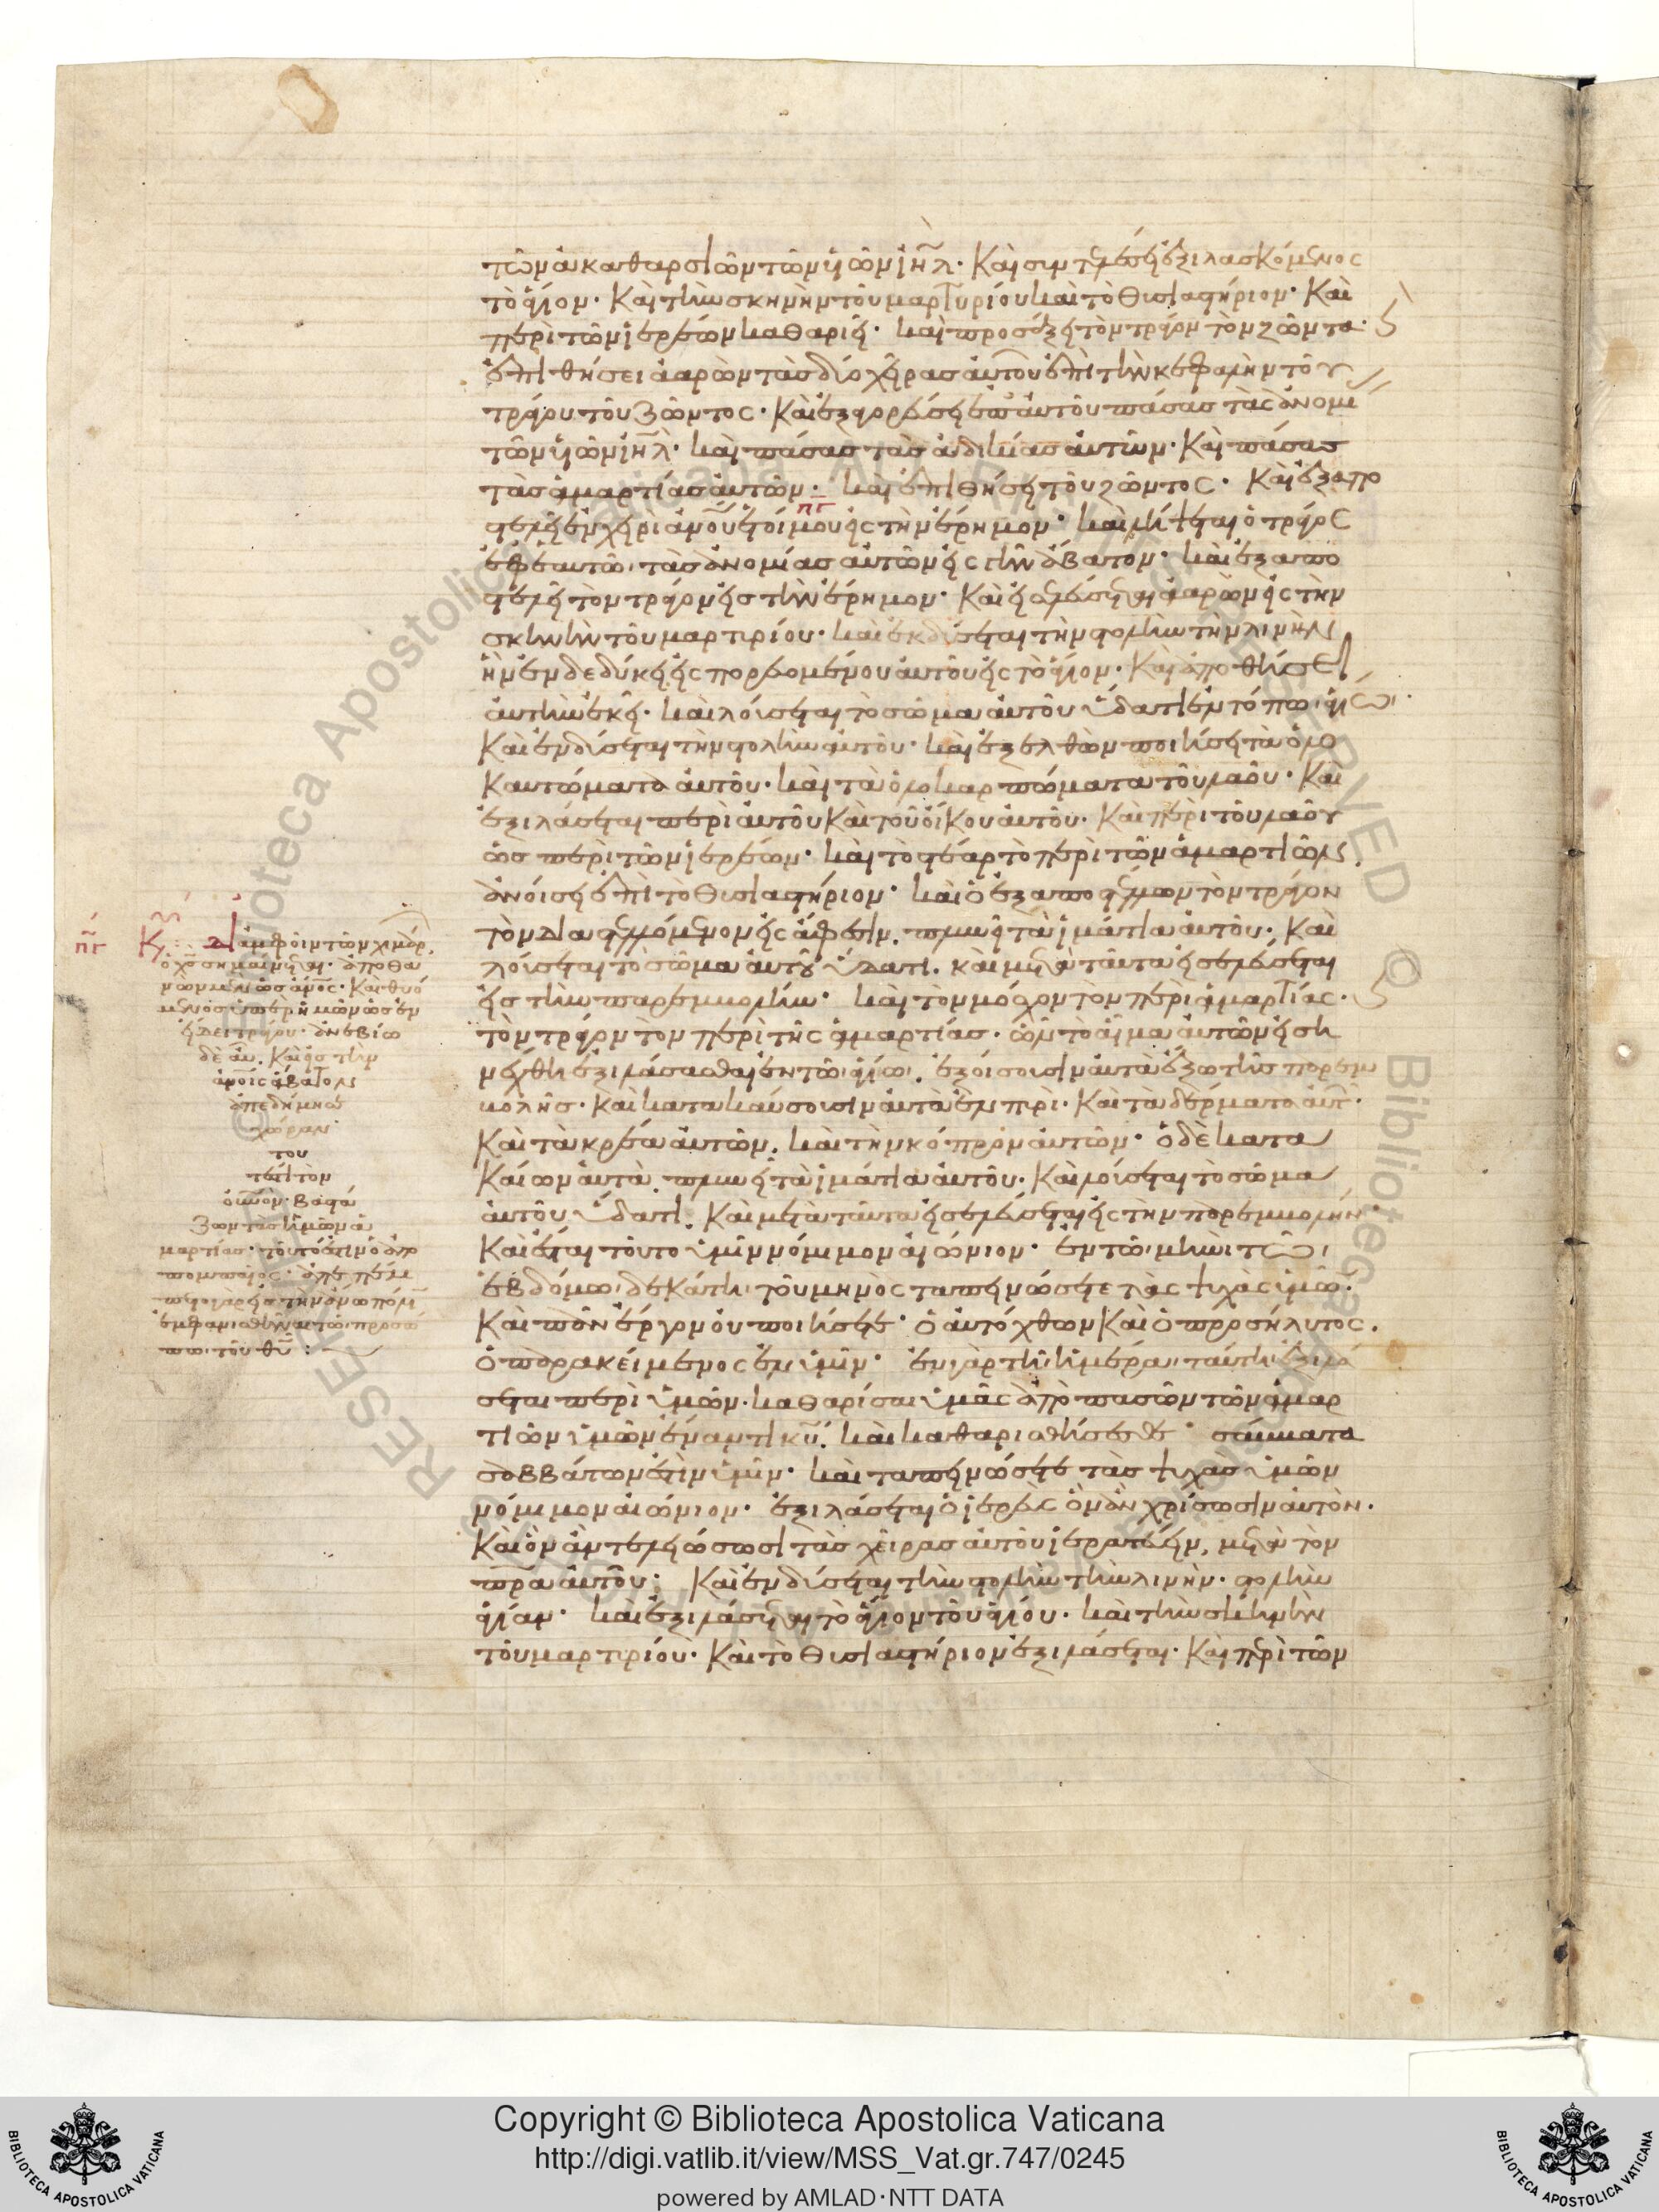 τῶν ἀκαθαρσιῶν τῶν υἱῶν ἰηλ. Καὶ συντελέσει ἐξιλασκόμενος
τὸ ἅγιον. Καὶ τὴν σκηνὴν τοῦ μαρτυρίου καὶ τὸ θυσιαστήριον. Καὶ
περὶ τῶν ἱερέων καθαριεῖ. καὶ προσάξει τὸν τράγον τὸν ζῶντα.
ἐπιθήσει ἀαρὼν τὰς δύο χεῖρας αὐτοῦ ἐπὶ τὴν κεφαλὴν τοῦ
τράγου τοῦ ζῶντος. Καὶ ἐξαγορεύσει ἐπ αὐτοῦ πάσας τὰς ἀνομί
τῶν υἱῶν ἰηλ. καὶ πάσας τὰς ἀδικίας αὐτῶν. Καὶ πάσας
τὰς ἁμαρτίας αὐτῶν. καὶ ἐπιθήσει τοῦ ζῶντος. Καὶ ἐξαπο
πγ
στελεῖ ἐν χειρὶ ἀνου ἑτοίμου εἰς τὴν ἔρημον. καὶ λήψεται ὁ τράγος
ἐφ ἑαυτῶ τὰς ἀνομίας αὐτῶν εἰς τὴν ἄβατον. καὶ ἐξαπο
στελεῖ τὸν τράγον εἰς τὴν ἔρημον. Καὶ εἰσελεύσεται ἀαρὼν εἰς τὴν
σκηνὴν τοῦ μαρτυρίου. καὶ ἐκδύσεται τὴν στολὴν τὴν λινὴν
ἣν ἐνδεδύκει εἰσπορευομένου αὐτοῦ εἰς τὸ ἅγιον. Καὶ ἀποθήσει
αὐτὴν ἐκεῖ. καὶ λούσεται τὸ σῶμα αὐτοῦ ὕδατι ἐν τόπω ἁγίω.
Καὶ ἐνδύσεται τὴν στολὴν αὐτοῦ. καὶ ἐξελθὼν ποιήσει τὰ ὁλο
καυτώματα αὐτοῦ. καὶ τὰ ὁλοκαρπώματα τοῦ λαοῦ. Καὶ
ἐξιλάσεται περὶ αὐτοῦ Καὶ τοῦ οἴκου αὐτοῦ. Καὶ περὶ τοῦ λαοῦ
ὡς περὶ τῶν ἱερέων. καὶ τὸ στέαρ τὸ περὶ τῶν ἁμαρτιῶν
ἀνοίσει ἐπὶ τὸ θυσιαστήριον. καὶ ὁ ἐξαποστέλλων τὸν τράγον
τὸν διαστελλόμενον εἰς ἄφεσιν. πλυνεῖ τὰ ἱμάτια αὐτοῦ. Καὶ
λούσεται τὸ σῶμα αὐτοῦ ὕδατι. καὶ μετὰ ταῦτα εἰσελεύσεται
εἰς τὴν παρεμβολήν. καὶ τὸν μόσχον τὸν περὶ ἁμαρτίας.
τὸν τράγον τὸν περὶ τῆς ἁμαρτίας. ὧν τὸ αἷμα αὐτῶν εἰση
νέχθη ἐξιλάσασθαι ἐν τῶ ἁγίω. ἐξοίσουσιν αὐτὰ ἔξω τῆς παρεμ
βολῆς. Καὶ κατακαύσουσιν αὐτὰ ἐν πυρί. Καὶ τὰ δέρματα αὐτ.
Καὶ τὰ κρέα αὐτῶν. καὶ τὴν κόπρον αὐτῶν. ὁ δὲ κατα
καίων αὐτὰ πλυνεῖ τὰ ἱμάτια αὐτοῦ. Καὶ λούσεται τὸ σῶμα
αὐτοῦ ὕδατι. Καὶ μετὰ ταῦτα εἰσελεύσεται εἰς τὴν παρεμβολήν.
Καὶ ἔσται τοῦτο ὑμῖν νόμιμον αἰώνιον. ἐν τῶ μηνὶ τῶ
ἑβδόμω δεκάτη τοῦ μηνὸς ταπεινώσετε τὰς ψυχὰς ὑμῶ.
Καὶ πᾶν ἔργον οὐ ποιήσετε. ὁ αὐτόχθων Καὶ ὁ προσήλυτος.
ὁ προσκείμενος ἐν ὑμῖν. ἐν γὰρ τῆ ἡμέρα ταύτη ἐξιλά
σεται περὶ ὑμῶν. καθαρίσαι ὑμᾶς ἀπὸ πασῶν τῶν ἁμαρ
τιῶν ὑμῶν ἔναντι κυ. καὶ καθαρισθήσεσθε. σάββατα
σαββάτων ἐστὶν ὑμῖν. καὶ ταπεινώσετε τὰς ψυχὰς ὑμῶν
νόμιμον αἰώνιον. ἐξιλάσεται ὁ ἱερεὺς ὃν ἂν χρίσωσιν αὐτὸν.
Καὶ ὃν ἂν τελειώσωσι τὰς χεῖρας αὐτοῦ ἱερατεύειν. μετὰ τὸν
πρα αὐτοῦ. Καὶ ἐνδύσεται τὴν στολὴν τὴν λινὴν. στολὴν
ἁγίαν. καὶ ἐξιλάσεται τὸ ἅγιον τοῦ ἁγίου. καὶ τὴν σκηνὴν
τοῦ μαρτυρίου. Καὶ τὸ θυσιαστήριον ἐξιλάσεται. Καὶ περὶ τῶν
πγ Κυ: Δι ἀμφοῖν τῶν χιμάρ.
ὁ χς σημαίνεται. ἀποθα
νὼν μὲν ὡς ἄνος. Καὶ θυό
μενος ὑπὲρ ἡμῶν ὡς ἐν
εἴδει τράγου. ἀνεβίω